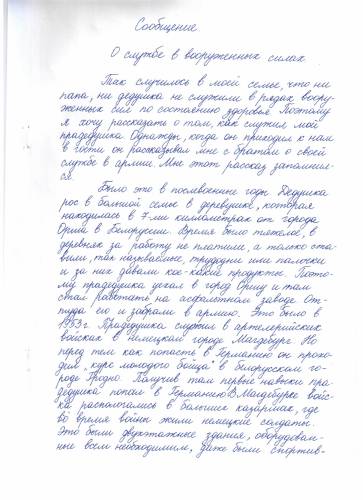 Сообщение
О службе в вооруженных силах
Так случилось в моей семье, что ни
папа, ни дедушка не служили в рядах воору-
женных сил по состоянию здоровья. Поэтому
я хочу рассказать о том, как служил мой
прадедушка. Однажды, когда он приходил к нам
в гости он рассказывал мне с братом о своей
службе в армии. Мне этот рассказ запомнил-
ся.
Было это в послевоенные годы. Дедушка
рос в большой семье в деревушке, которая
находилась в 7-ми километрах от города
Орша в Белоруссии. Время было тяжелое, в
деревнях за работу не платили, а только ста-
вили, так называемые, трудодни или палочки
и за них давали кое-какие продукты. Поэто-
му прадедушка уехал в город Оршу и там
стал работать на асфальтном заводе. От-
туда его и забрали в армию. Это было в
1953г. Прадедушка служил в артелерийских
войсках в немецком городе Магдебург. Но
перед тем как попасть в Германию он прохо-
дил "курс молодого бойца" в белорусском го-
роде Гродно. Получив там первые навыки пра-
дедушка попал в Германию. В Магдебурге войс-
ка распологались в больших казармах, где
во время войны жили немецкие солдаты.
Это были двухэтажные здания, оборудован-
ные всем необходимым, даже были спортив-